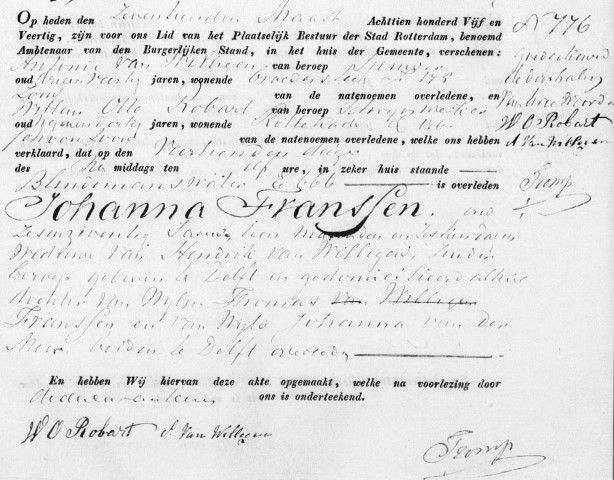 Op heden den Zeventienden Maart Achttien honderd Vijf en
Veertig, zijn voor ons Lid van het Plaatselijk Bestuur der Stad Rotterdam, benoemd
Ambtenaar van den Burgerlijken Stand, in het huis der Gemeente, verschenen:
Antonie Van Willigen van beroep
oud jaren, wonende
Zoon van de natenoemen overledene, en
Willem Otto Robart van beroep
oud jaren, wonende
Schoonzoon van de natenoemen overledene, welke ons hebben
verklaard, dat op den Veertienden dezer
des middags ten elf ure, in zeker huis staande
Blindemanswater E 666 is overleden
Johanna Franssen. oud
Zesenzeventig Jaren, tien Maanden en Dagen
Weduwe Van Hendrik van Willigen, Zonder
beroep geboren te Delft en gedomicilieerd alhier
dochter Van Wylen Thomas Van Willigen
Franssen en van Wyle Johanna van der
Meer beiden te Delft overleden
En hebben Wij hiervan deze akte opgemaakt, welke na voorlezing door
de declaranten is ons is onderteekend.
W O Robart A Van Willigen
Tromp
N 776
goedkeurend
de doorhaling
Van twee Woorden
W O Robart
A Van Willigen
Tromp